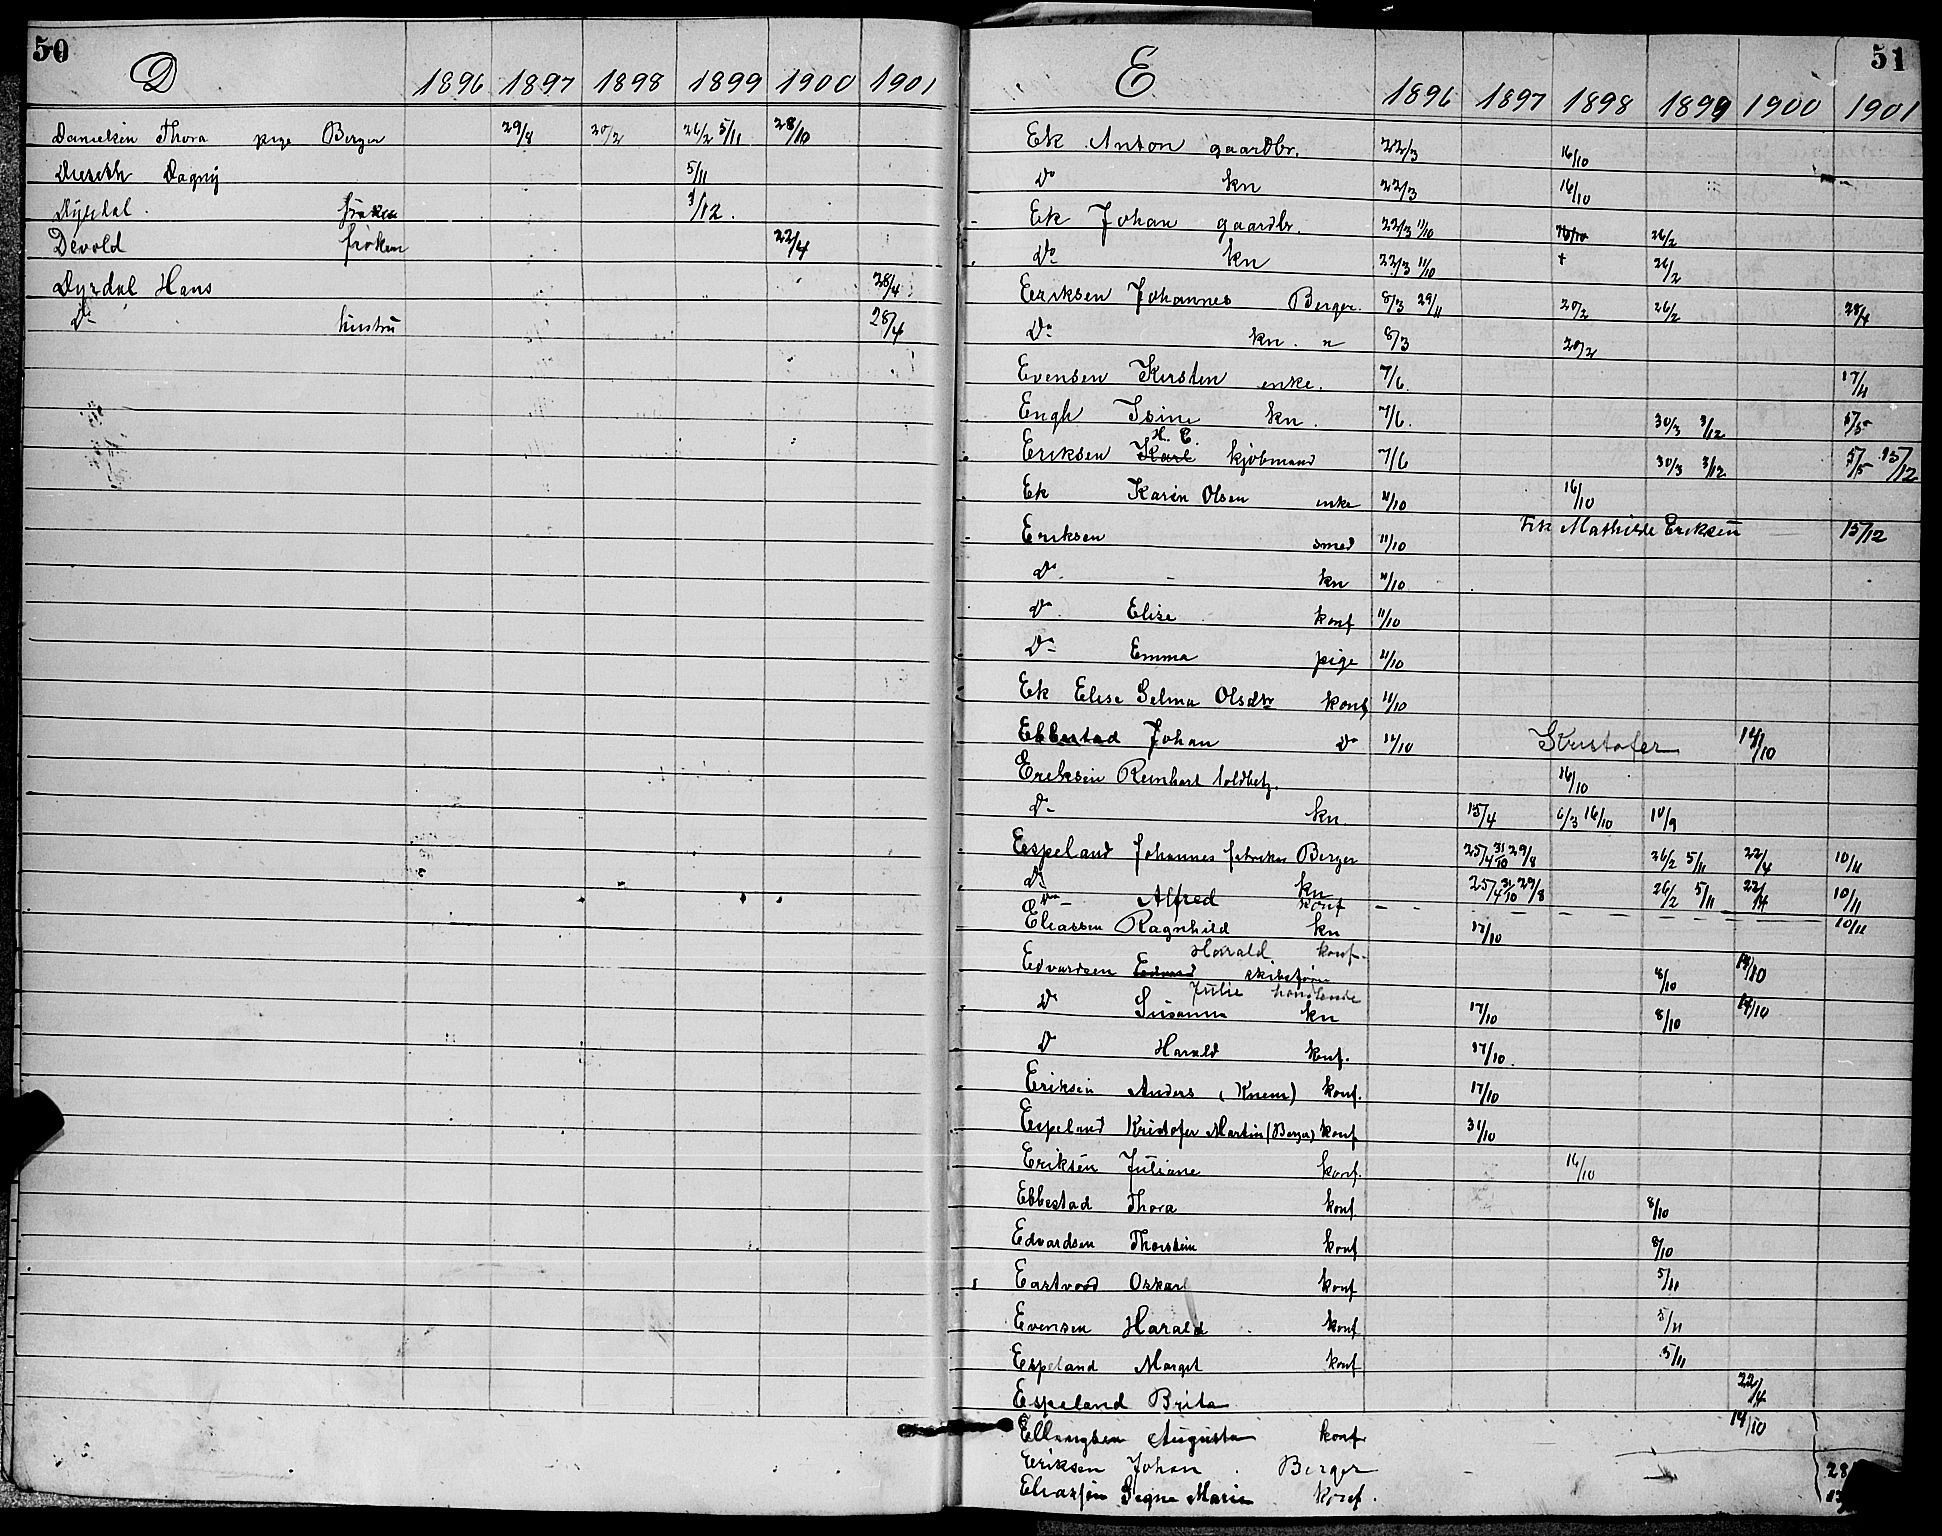 50
D 1896 1897 1898 1899 1900 1901
Danielsen Thora pige Berger 29/8 20/2 26/2 5/11 28/10
Dieseth Dagny 5/11
Dyrdal frøken 3/12
Devold frøken 22/4
Dyrdal Hans 28/4
Do hustru 28/4
51
E 1896 1897 1898 1899 1900 1901
Ek Anton gaardbr. 22/3 16/10
Do kn 22/3 16/10
Ek Johan gaardbr. 22/3 11/10 16/10 26/2
Do kn 22/3 11/10 + 26/2
Eriksen Johannes Berger. 8/3 29/11 20/2 26/2 28/4
Do kn. " 8/3 20/2
Evensen Kirsten enke. 7/6. 17/11
Engh Isine kn. 7/6. 30/3 3/12 5/5
H. C.
Eriksen Karl kjøbmand 7/6 30/3 3/12 5/5 15/12
Ek Karin Olsen enke 11/10 16/10
Eriksen smed 11/10 Frk Mathilde Eriksen 15/12
Do - kn 11/10
Do Elise konf 11/10
Do Emma pige 11/10
Ek Elise Selma Olsdtr konf 11/10
Ebbestad Johan Do 11/10 Kristofer 14/10
Eriksen Reinhart toldbetj. 16/10
Do kn. 25/4 6/3 16/10 10/9
Espeland Johannes fabrikar Berger 25/4 31/10 29/8 26/2 5/11 22/4 10/11
Do kn 25/4 31/10 29/8 26/2 5/11 22/4 10/11
Do Alfred konf 10/11
Eliassen Ragnhild kn 17/10
Harald konf.
Edvardsen Edvard skibsfører 8/10 14/10
Julie handlende
Do Susanna kn 17/10 8/10 14/10
Do Harald konf. 17/10
Eriksen Anders (Knem) konf. 17/10
Espeland Kristofer Martin (Berger) konf 31/10
Eriksen Juliane konf. 16/10
Ebbestad Thora konf. 8/10
Edvardsen Thorstein konf 8/10
Eastvood Oskar konf 5/11
Evensen Harald konf 5/11
Espeland Margit konf 5/11
Espeland Brita 22/4
Ellingsen Augusta konf. 14/10
Eriksen Johan Berger 28
Eliassen Signe Marie konf. 13